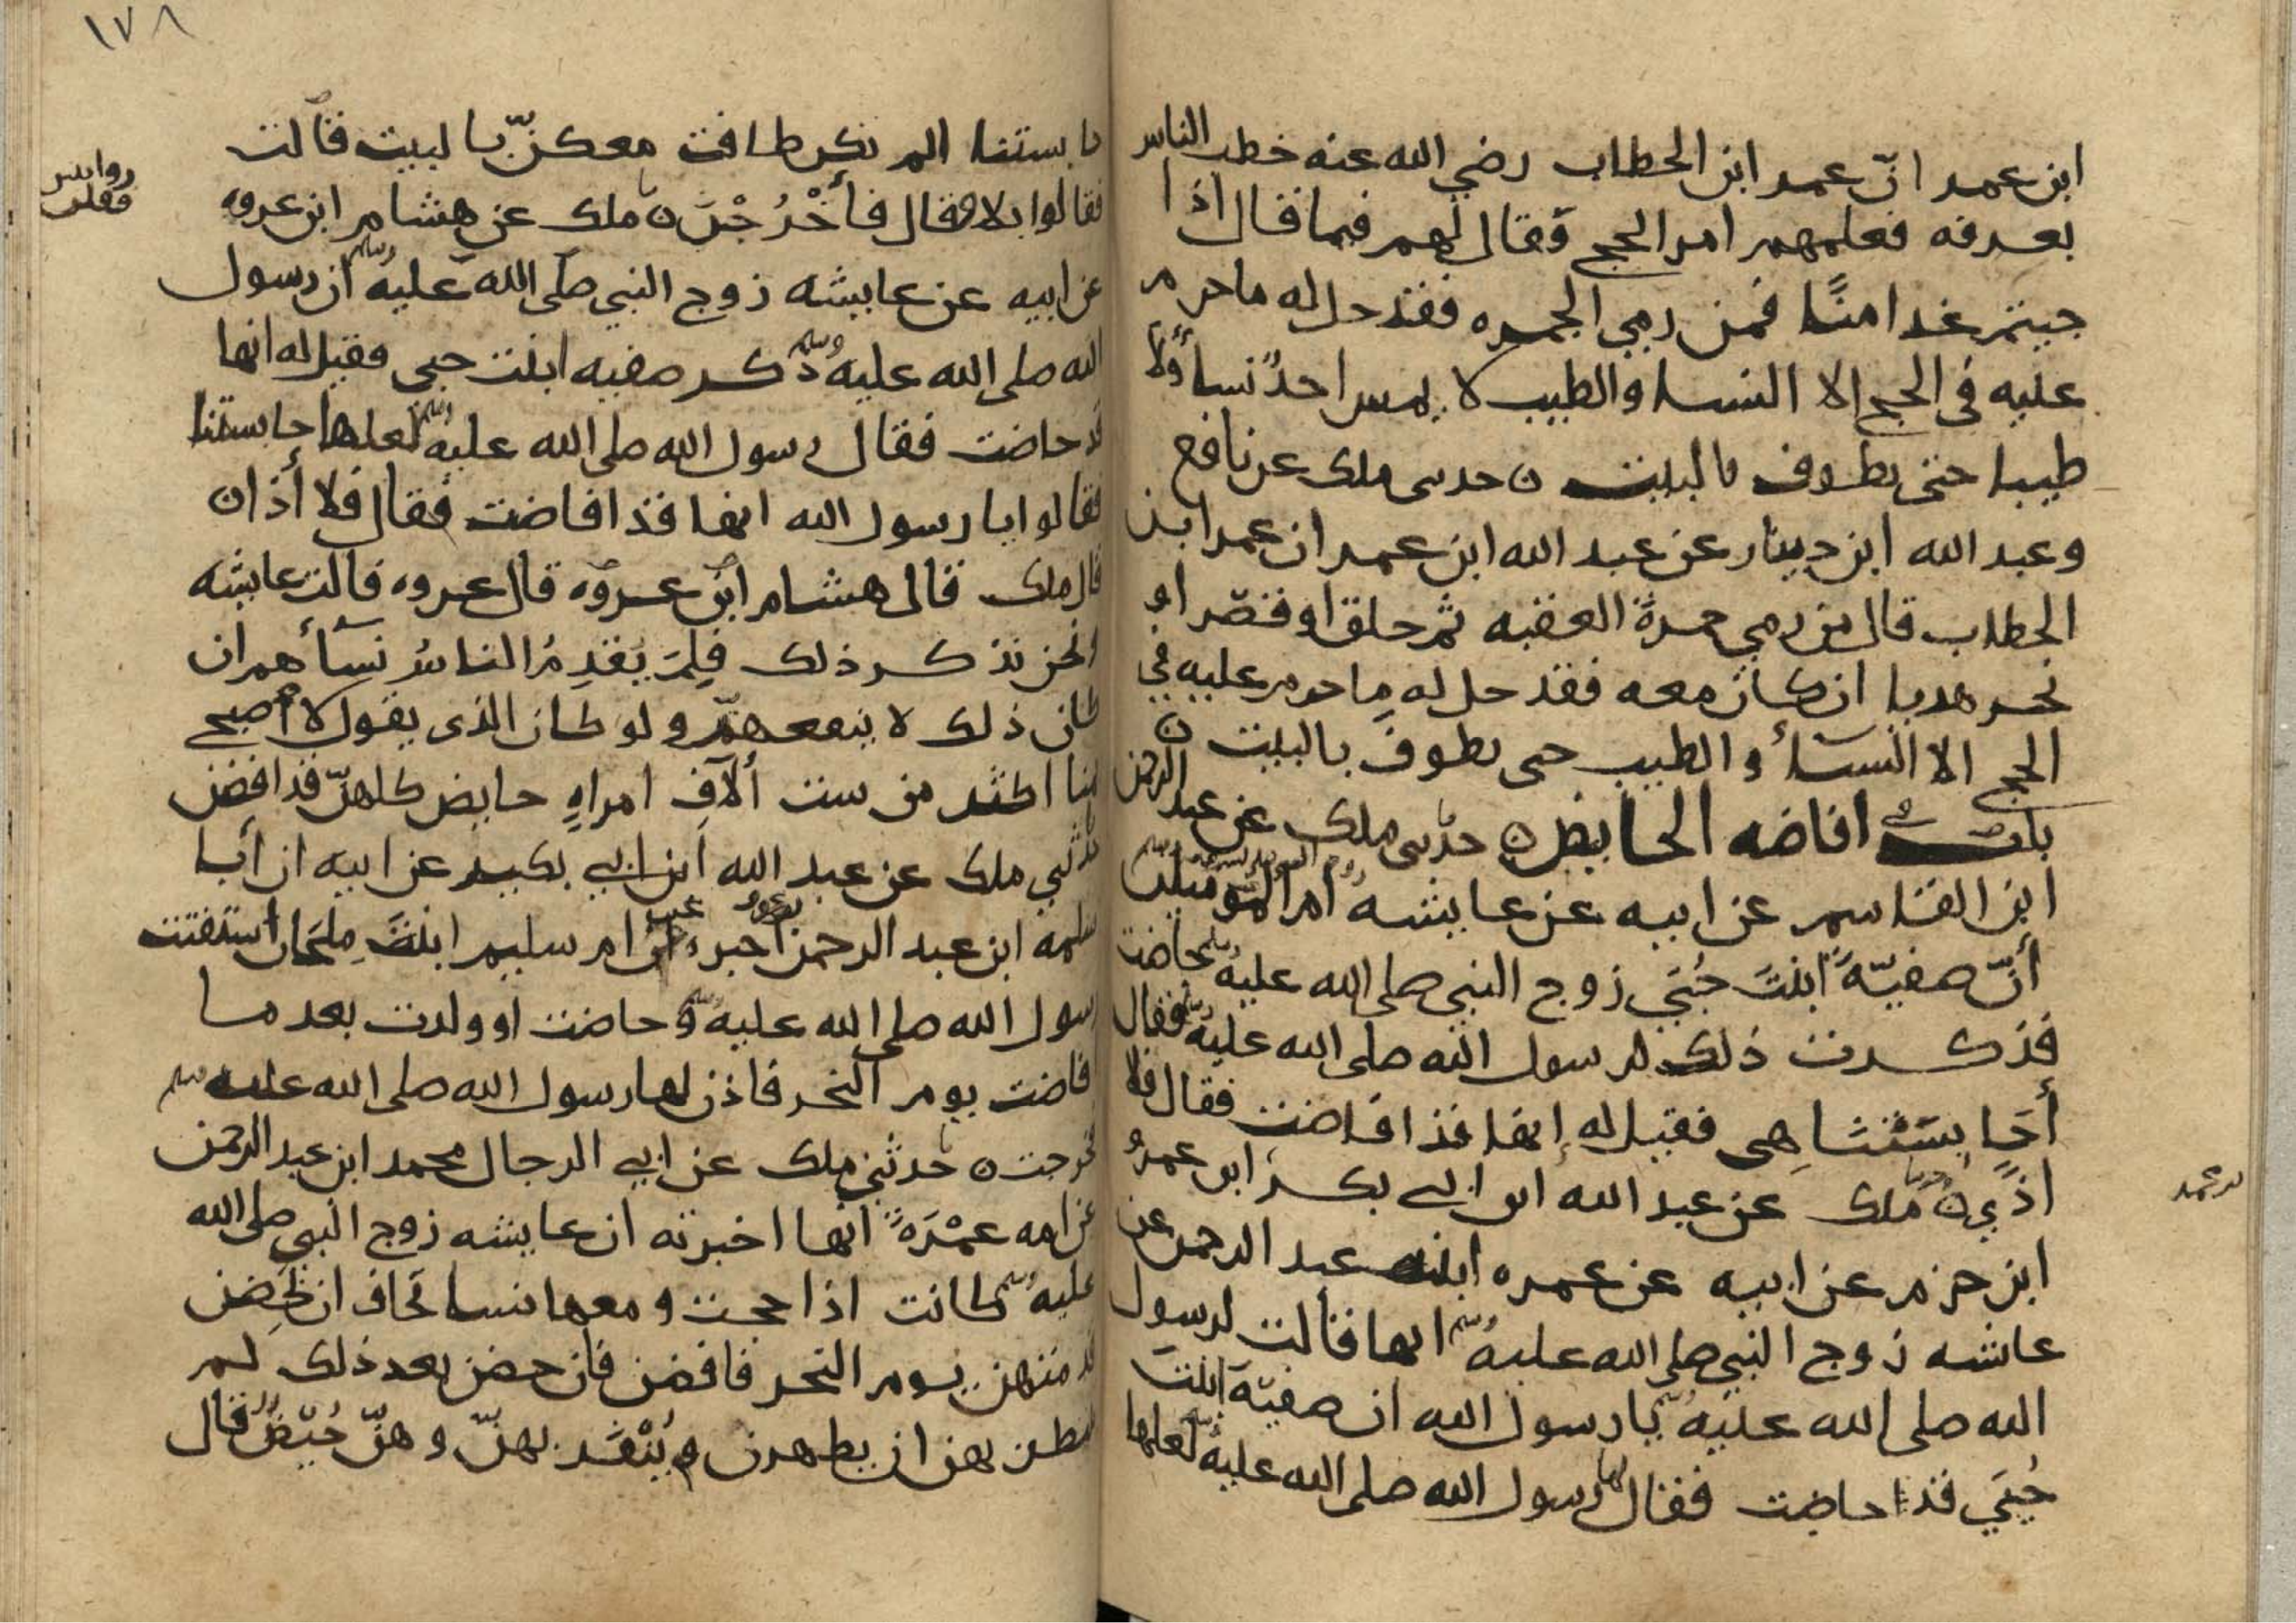 ابن عمر انّ عمر ابن الخطاب رضي الله عنه خطب الناس
بعرفه فعلمهم امر الحج وقال لهم فيما قال اذا
جيتم غدا منًا فمن رمي الجمره فقد حل له ما حرم
عليه في الحج الا النسا والطيب لا يمس احدٌ نسأ ولا
طيبا حتى يطوف بالبيت ن حدثنى ملك عن نافع
وعبد الله ابن دينار عن عبد الله ابن عمر ان عمر ابن
الخطاب قال من رمي جمرةَ العقبه ثم حلق او قصّر او
نحر هديا ان كان معه فقد حل له ما حرم عليه في
الحج الا النسأ والطيب حتى يطوفَ بالبيت ن
باب في افاضه الحايض ن حدثنى ملك عن عبد الرحمن
ابن القاسم عن ابيه عن عايشه ام المومنين
أنّ صفيّةَ ابنتَ حُيَي زوج النبي صلى الله عليه وسلم حاضت
فذكرت ذلك لرسول الله صلى الله عليه وسلم فقال
أحَابِسَتُنَا هِى فقيل له إنها قد افاضت فقال فلا
اذًي ن ملك عن عبد الله ابن ابي بكر ابن عمرو
ابن حزم عن ابيه عن عمره ابنت عبد الرحمن عن
عائشه زوج النبي صلى الله عليه وسلم انها قالت لرسول
الله صلى الله عليه وسلم يا رسول الله ان صفيّة ابنت
حُيَي قد حاضت فقال رسول الله صلى الله عليه وسلم لعلها
١٧٨
حابستنا الم تكن طافت معكنّ بالبيت قالت
فقالوا بلا قال فأخْرُجْنَ ن ملك عن هشام ابن عروه
عن ابيه عن عايشه زوج النبي صلى الله عليه وسلم ان رسول
الله صلى الله عليه وسلم ذكر صفيه ابنت حيي فقيل له انها
قد حاضت فقال رسول الله صلى الله عليه وسلم لعلها حابستنا
فقالوا يا رسول الله انها قد افاضت فقال فلا أذان
قال ملك قال هشام ابن عروه قال عروه قالت عايشه
ونحن نذكر ذلك فلِمَ يُقدِمُ الناسُ نسأهم ان
كان ذلك لا ينفعهنّ ولو كان الذى يقول لاصبح
بمنا اكثر من ست ألآفِ امراهٍ حايض كلهنّ قد افضن
حدثني ملك عن عبد الله ابن ابي بكر عن ابيه ان أبا
سلمه ابن عبد الرحمن اخبره ام سليم ابنتَ مِلحَان استفتت
رسول الله صلى الله عليه وسلم وحاضت او ولدت بعد ما
افاضت يوم النحر فاذن لها رسول الله صلى الله عليه وسلم
فخرجت ن حدثني ملك عن ابي الرجال محمد ابن عبد الرحمن
عن امه عمْرَةَ انها اخبرته ان عايشه زوج النبي صلى الله
عليه وسلم كانت اذا حجت ومعها نسا تخاف ان يحضن
قدمتهن يوم النحر فافضن فان حضن بعد ذلك لم
تنتظر بهن ان يطهرن ويُنْفَر بهنّ وهنّ حُيّضٌ قال